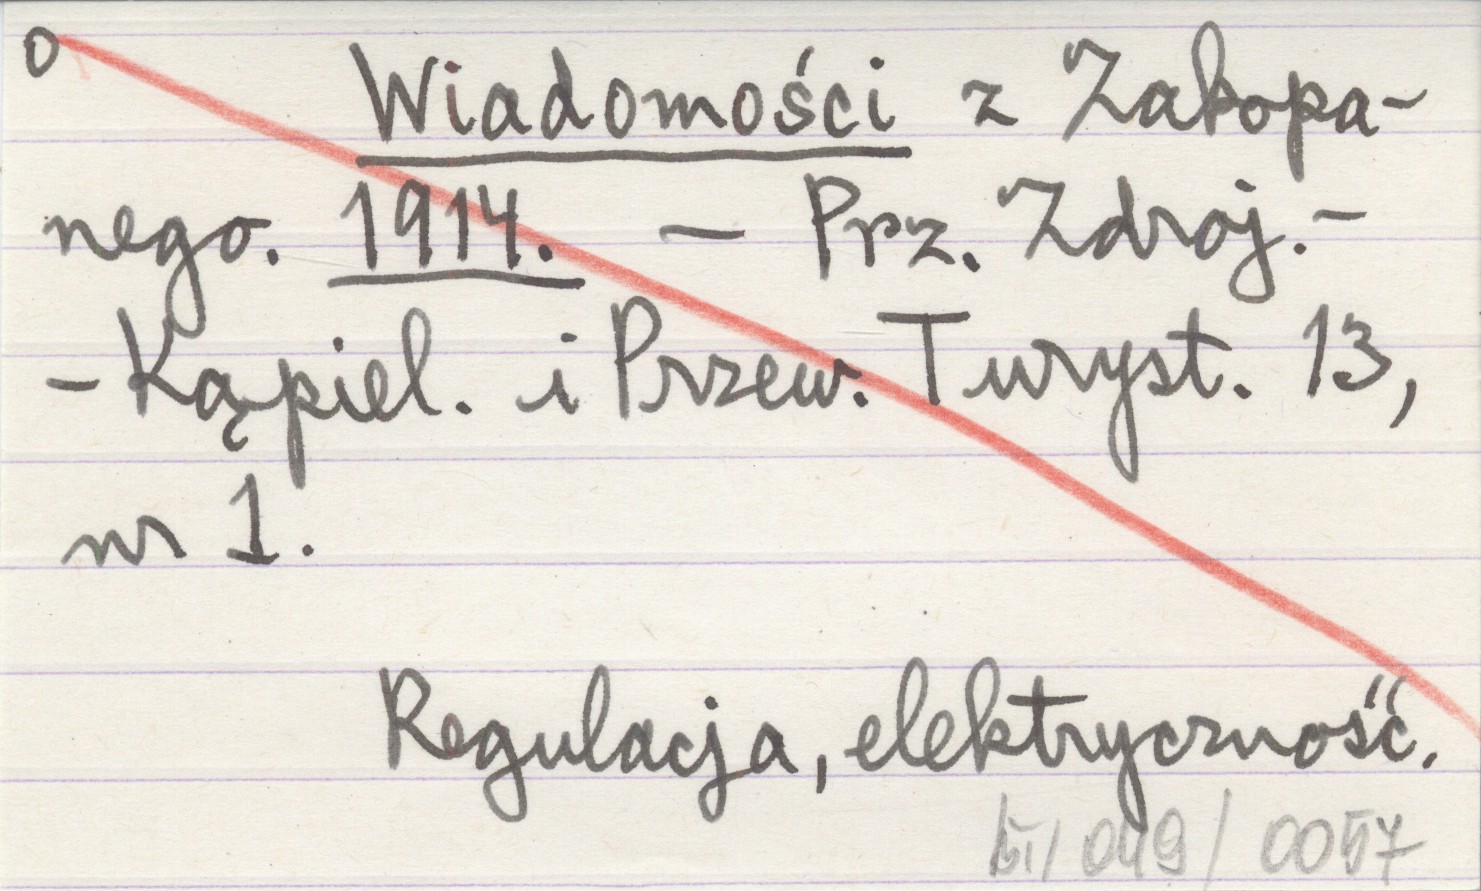 0
Wiadomości z Zakopa-
nego. 1914. – Prz. Zdroj.-
- Kąpiel. i Przew. Turyst. 13,
nr 1.
Regulacja, elektryczność.
/ 049 / 0057